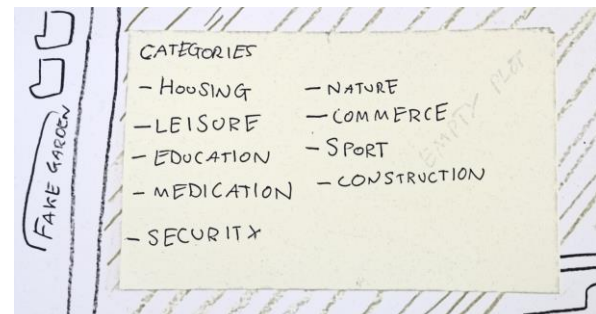 CATEGORIES
- HOUSING
- LEISURE
- EDUCATION
- MEDICATION
- SECURITY
- NATURE
- COMMERCE
- SPORT
- CONSTRUCTION
EMPTY PLOT
FAKE GARDEN